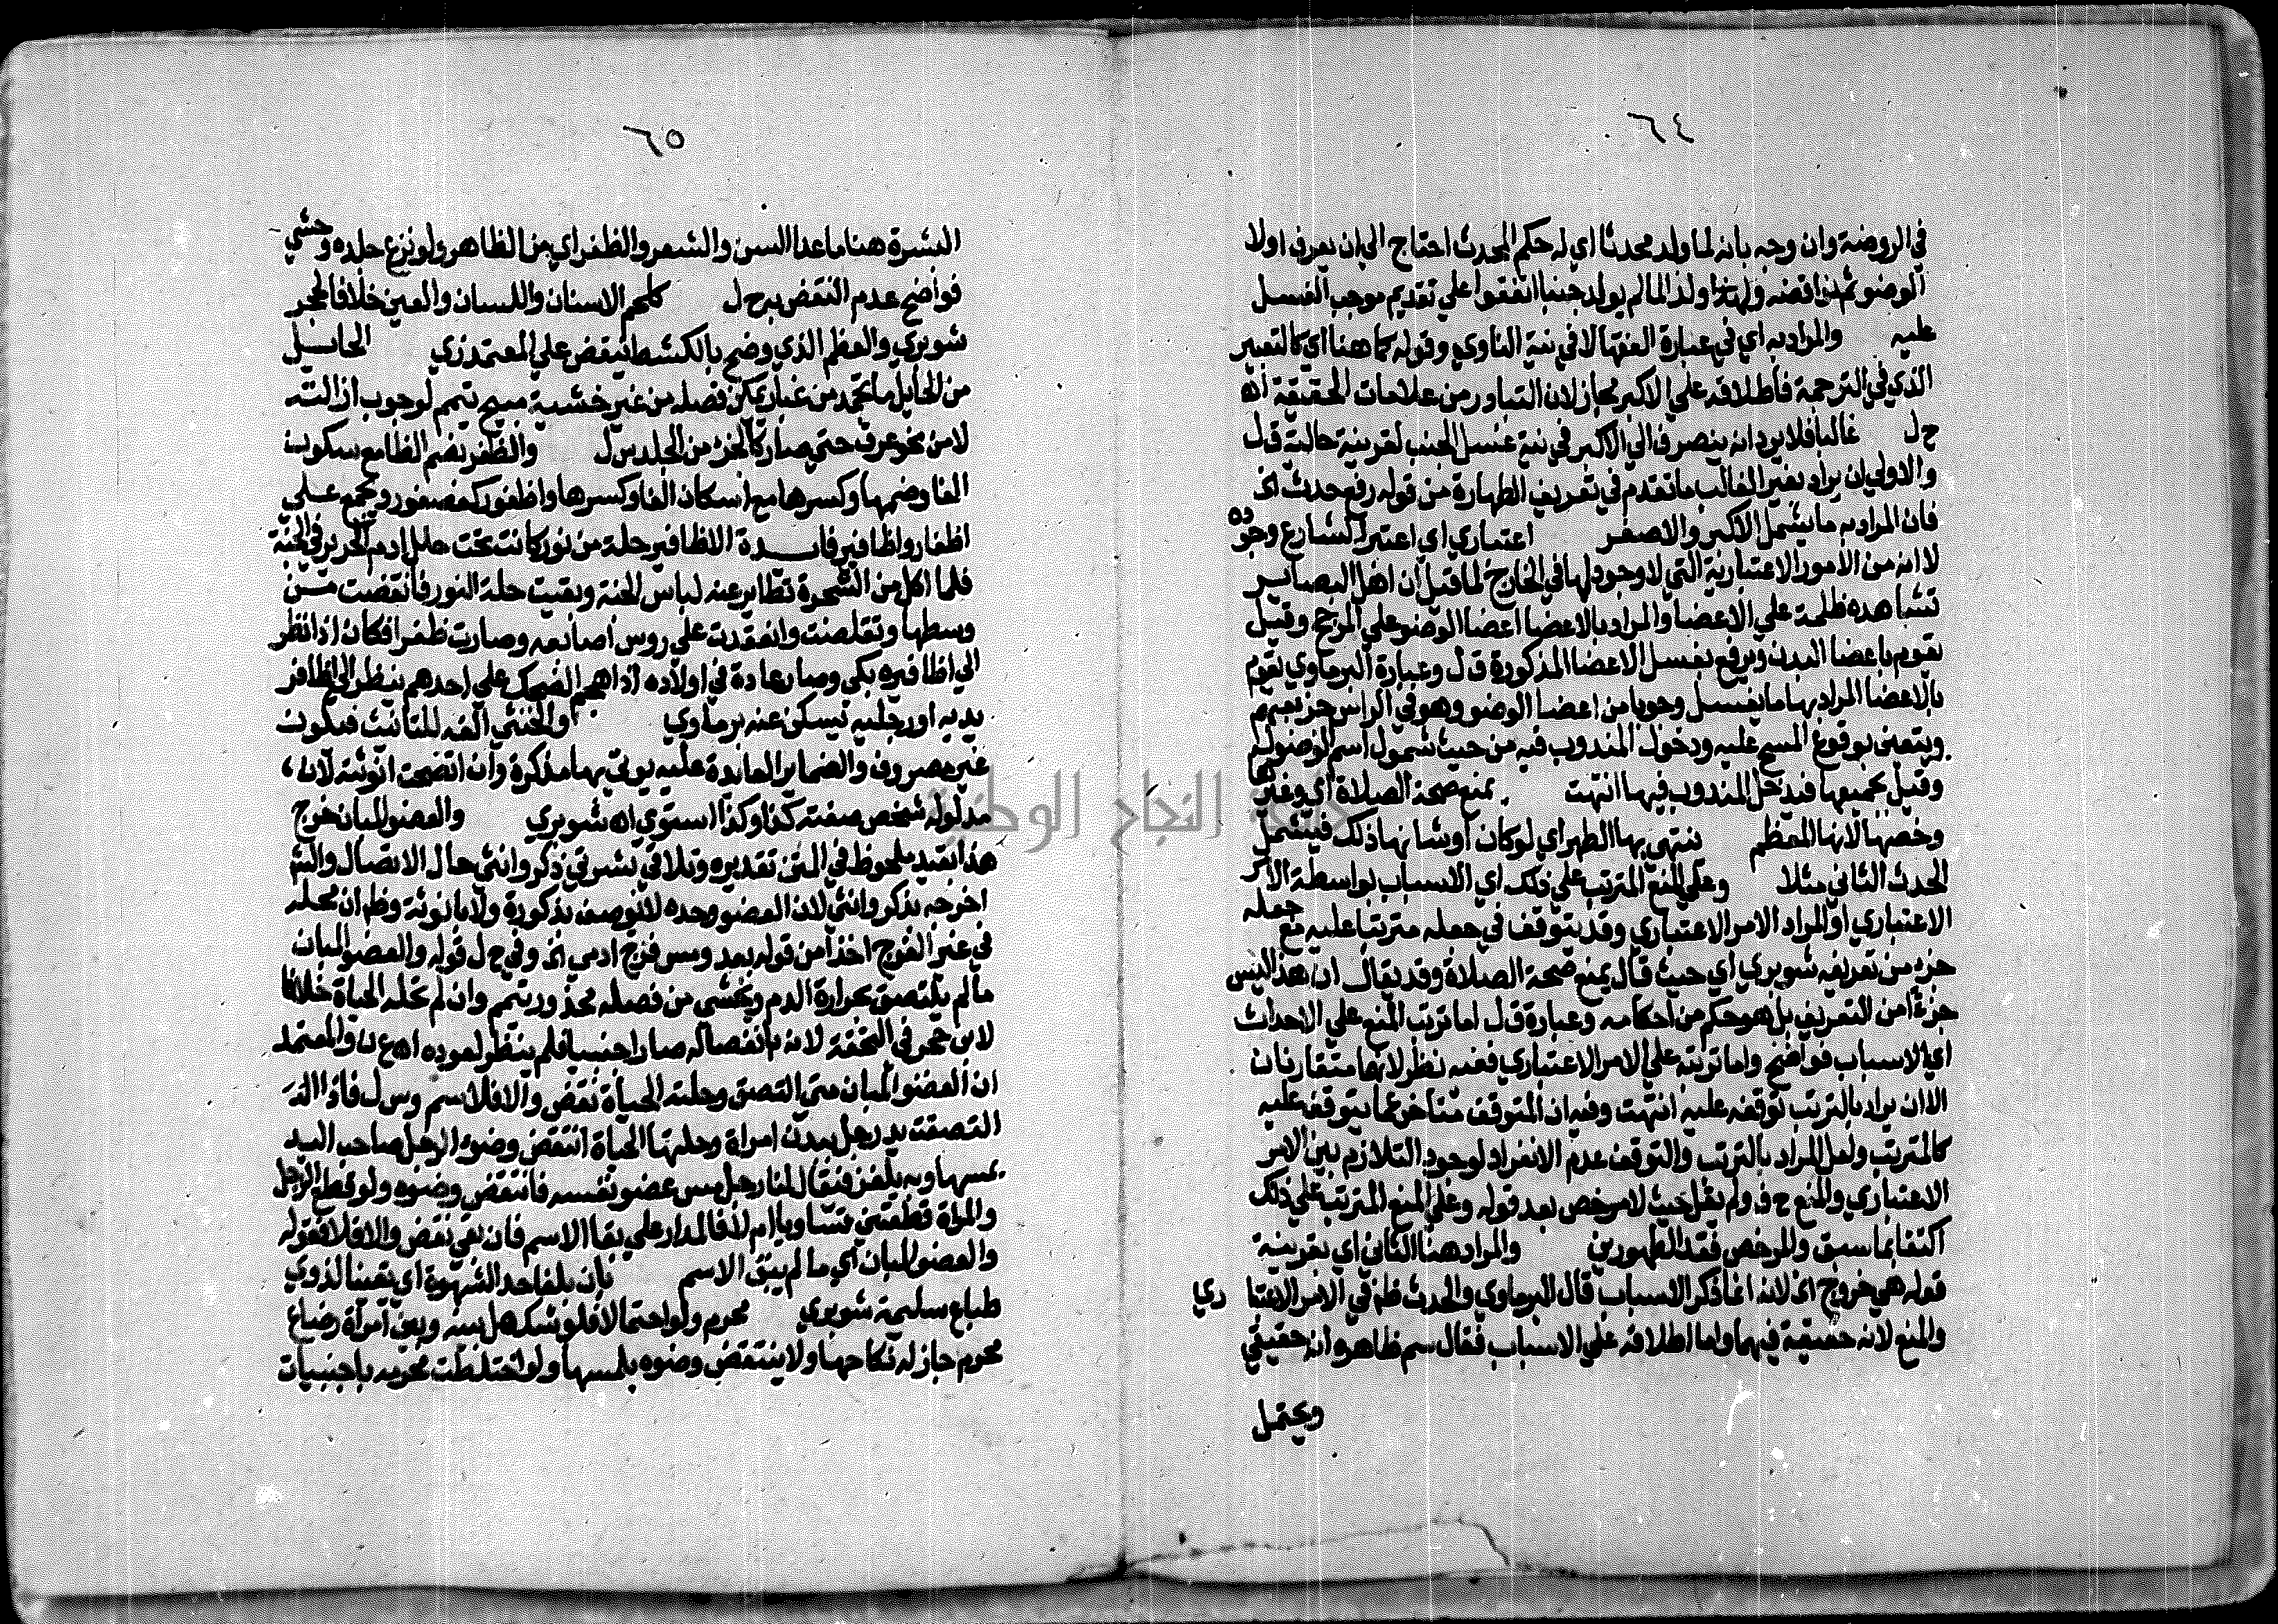 ٦٤
في الروضة وان وجه بانه لما ولد محدثا اي له حكم المحدث احتاج الي ان يعرف اولا
الوضوء ثم نواقضه ولذا لما لم يولد جنبا اتفقوا علي تقديم موجب الغسل
عليه والمراد به اي في عبارة الفقها لا في نية الناوي وقوله كما هنا اي كالتعبير
الذي في الترجمة فاطلاقه علي الاكبر مجاز لان التبادر من علامات الحقيقة اه
ح ل غالبا فلا يرد انه ينصرف الي الاكبر في نية غسل الجنب لقرينة حالية ق ل
والاولي ان يراد بغير الغالب ما تقدم في تعريف الطهارة من قوله رفع حدث اي
فان المراد به ما يشمل الاكبر والاصغر اعتباري اي اعتبر الشارع وجوده
لا انه من الامور الاعتبارية التي لا وجود لها في الخارج لما قيل ان اهل البصاير
تشاهده ظلمة علي الاعضا والمراد بالاعضا اعضا الوضو علي المرجح وقيل
يقوم باعضا البدن ويرفع بغسل الاعضا المذكورة ق ل وعبارة البرماوي يقوم
بالاعضا المراد بها ما يغسل وجوبا من اعضا الوضو وهو في الراس جزء مبهم
ويتعين بوقوع المسح عليه ودخول المندوب فيه من حيث شمول اسم الوضو له
وقيل بجميعها فيدخل المندوب فيها انتهت يمنع صحة الصلاة اي وغيرها
وخصها لانها المعظم ينتهي بها الطهر اي لو كان او شانها ذلك فيشمل
الحدث الثاني مثلا وعلي المنع المترتب علي ذلك اي الاسباب بواسطة الامر
الاعتباري او المراد الامر الاعتباري وقد يتوقف في جعله مترتبا عليه مع جعله
جزء من تعريفه شوبري اي حيث قال يمنع صحة الصلاة وقد يقال ان هذا ليس
جزءا من التعريف بل هو حكم من احكامه وعبارة ق ل اما ترتب المنع علي الاحداث
اي الاسباب فواضح واما ترتبه علي الامر الاعتباري ففيه نظر لانهما متقارنان
الا ان يراد بالترتب توقفه عليه انتهت وفيه ان المتوقف متاخر عما يتوقف عليه
كالمترتب ولعل المراد بالترتب والتوقف عدم الانفراد لوجود التلازم بين الامر
الاعتباري والمنع ح ف ولم يقل حيث لا مرخص بعد قوله وعلي المنع المترتب علي ذلك
اكتفا بما سبق والمرخص فقد الطهورين والمراد هنا الثاني اي بقرينة
قوله هي خروج الخ لانه انما ذكر الاسباب قال البرماوي والحدث ظاهر في الامر الاعتبا ري
والمنع لانه حقيقة فيهما واما اطلاقه علي الاسباب فقال سم ظاهر وانه حقيقي
ويحتمل
٦٥
البشرة هنا ما عدا السن والشعر والظفر اي من الظاهر ولو نزع جلده وحشي
فواضح عدم النقض به ح ل كلحم الاسنان واللسان والعين خلافا لحجر
شوبري والعظم الذي وضح بالكشط ينقض علي المعتمد زي الحايل
من الحايل ما تجمد من غبار يمكن فصله من غير خشية مبيح تيمم لوجوب ازالته
لا من نحو عرق حتي صار كالجزء من الجلد س ل والظفر بضم الظا مع سكون
الفا وضمها وكسرها مع اسكان الفا وكسرها واظفور كعصفور ويجمع علي
اظفار واظافير فايدة الاظافير حلة من نور كانت تحت حلل ادم الحرير في الجنة
فلما اكل من الشجرة تطاير عنه لباس الجنة وبقيت حلة النور فانقضت من
وسطها وتقلصت وانعقدت علي روس اصابعه وصارت ظفرا فكان اذا نظر
الي اظافيره بكي وصار عادة في اولاده اذا هجم الضحك علي احدهم ينظر الي اظافر
يديه او رجليه يسكن عنه برماوي والخنثي الفه للتانيث فيكون
غير مصروف والضماير العايدة عليه يوتي بها مذكرة وان اتضحت انوثته لان
مدلوله شخص صفته كذا وكذا استوي اه شوبري والعضو المبان خرج
هذا بقيد ملحوظ في المتن تقديره وتلاقي بشرتي ذكر وانثي حال الاتصال والش
اخرجه بذكر وانثي لان العضو وحده لا يوصف بذكورة ولا بانوثة وظ ان محله
في غير الفرج اخذا من قوله بعد ومس فرج ادمي الخ وفي ح ل قوله والعضو المبان
ما لم يلتصق بحرارة الدم ويخشي من فصله محذور تيمم وان لم تحله الحياة خلافا
لابن حجر في التحفة لانه بانفصاله صار اجنبيا فلم ينظر لعوده اه ع ن والمعتمد
ان العضو المبان متي التصق وحلته الحياة نقض والا فلا سم وس ل فاذا
التصقت يد رجل ببدن امراة وحلتها الحياة انتقض وضوء الرجل صاحب اليد
بمسها وبه يلغز فيقال لنا رجل مس عضو نفسه فانتقض وضوه ولو قطع الرجل
والمراة قطعتين تساويا ام لا فالمدار علي بقا الاسم فان بقي نقض والا فلا فقوله
والعضو المبان اي ما لم يبق الاسم بان بلغا حد الشهوة اي يقينا لذوي
طباع سليمة شوبري محرم ولو احتمالا فلو شك هل بينه وبين امرأة رضاع
محرم جاز له نكاحها ولا ينتقض وضوه بلمسها ولو اختلطت محرمه باجنبيات
جامعة النجاح الوطنية